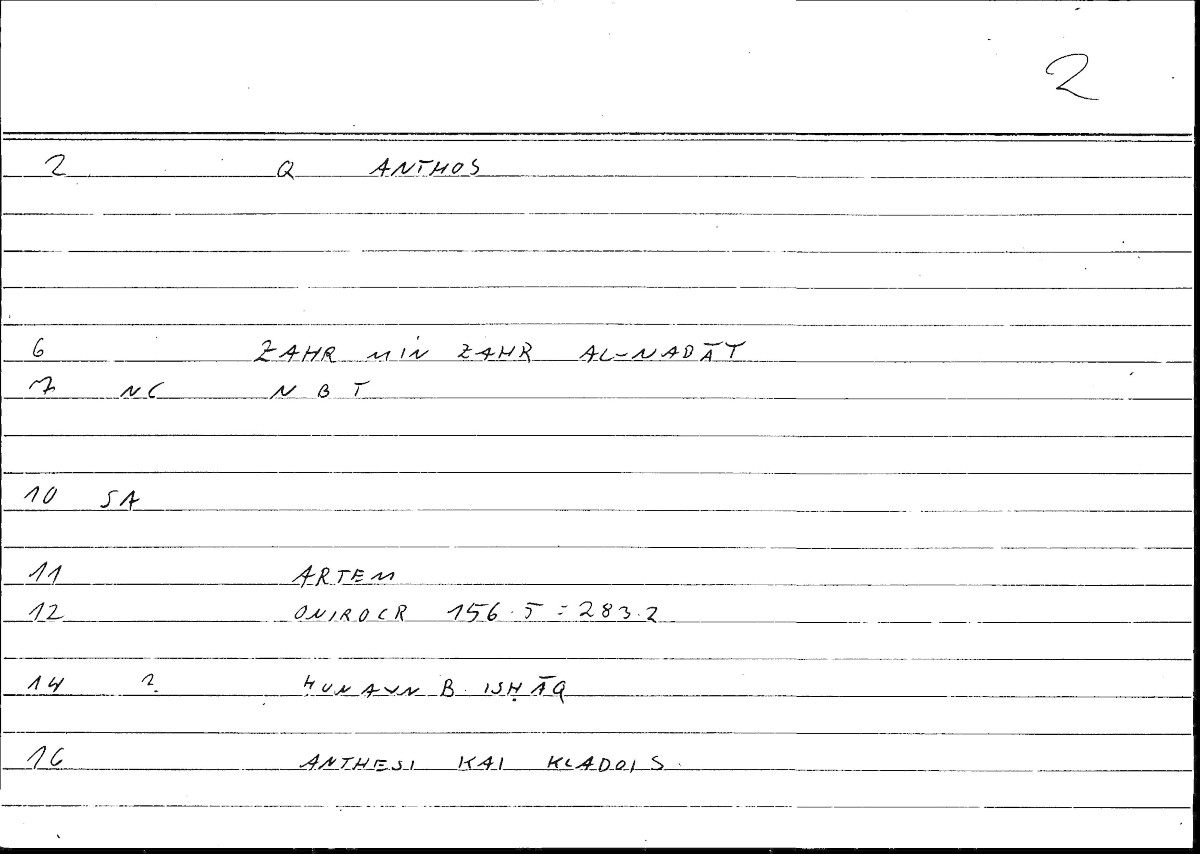 2
2 Q ANTHOS
6 ZAHR MIN ZAHR AL-NADĀT
7 NC N B T
10 SA
11 ARTEM
12 ONIROCR 156.5 = 283.2
14 ? HUNAYN B. ISḤĀQ
16 ANTHESI KAI KLADOIS.